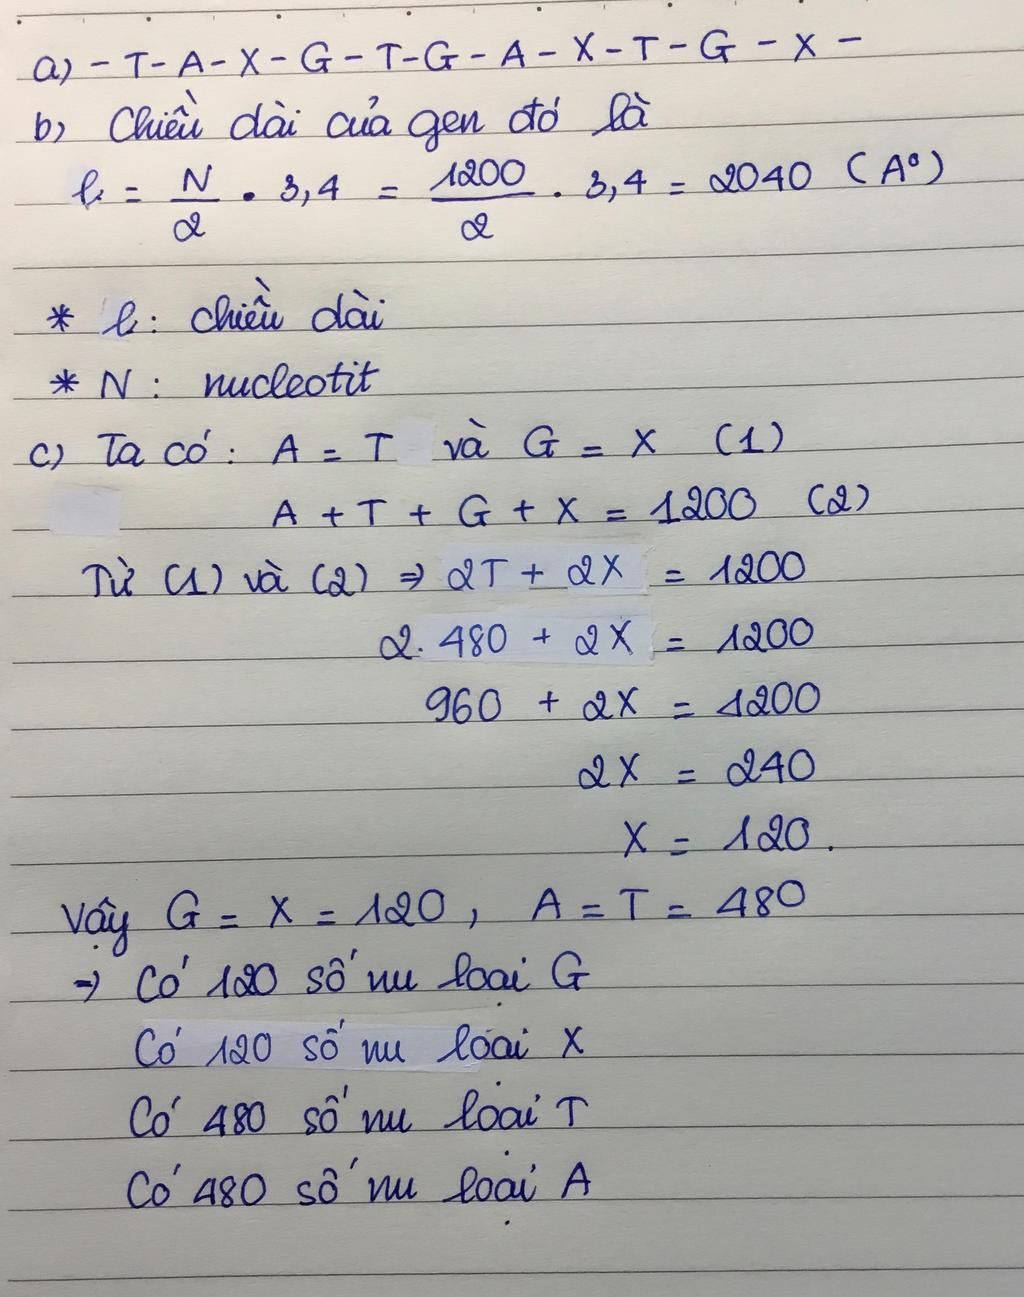 a) - T - A - X - G - T - G - A - X - T - G - X -
b) Chiều dài của gen đó là
l = N/2 . 3,4 = 1200/2 . 3,4 = 2040 (A°)
* l : chiều dài
* N : nucleotit
c) Ta có : A = T và G = X (1)
A + T + G + X = 1200 (2)
Từ (1) và (2) ⇒ 2T + 2X = 1200
2. 480 + 2X = 1200
960 + 2X = 1200
2X = 240
X = 120.
Vậy G = X = 120 , A = T = 480
⇒ Có 120 số nu loại G
Có 120 số nu loại X
Có 480 số nu loại T
Có 480 số nu loại A